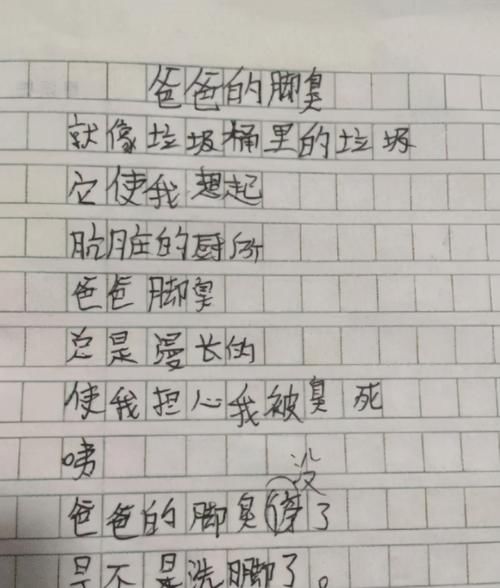 爸爸的脚臭
就像垃圾桶里的垃圾
它使我想起
肮脏的厨所
爸爸脚臭
总是漫长的
使我担心我被臭死
咦
没
爸爸的脚臭了
是不是洗脚了。